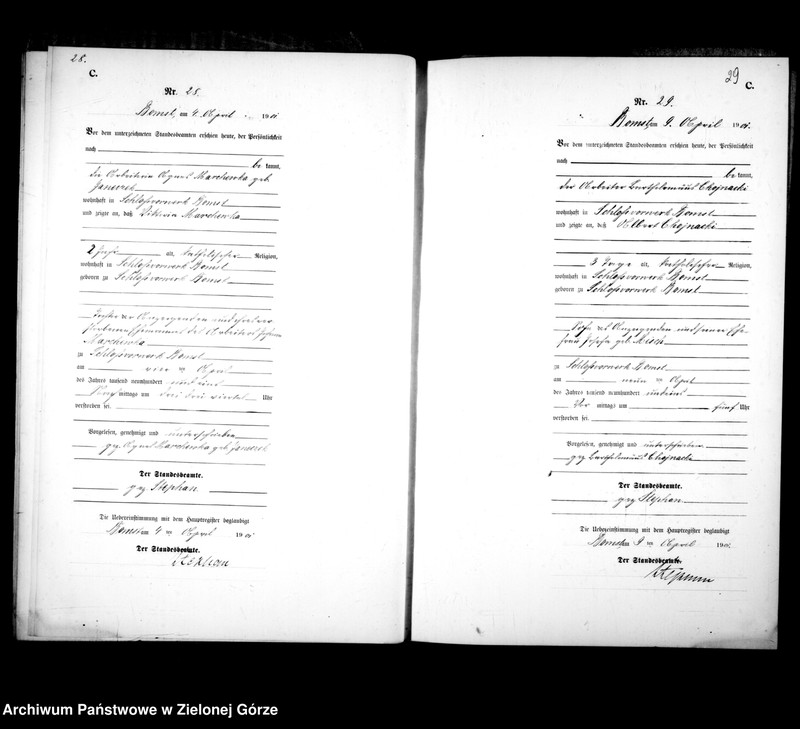 28.
C.
Nr. 28.
Bomst, am 4. April 1901
Vor dem unterzeichneten Standesbeamten erschien heute, der Persönlichkeit
nach
be kannt,
die Arbeiterin Agnes Marchewka geb.
wohnhaft in Schloßvorwerk Bomst
und zeigte an, daß Viktoria Marchewka
2 Jahr alt, katholischer Religion,
wohnhaft in Schloßvorwerk Bomst
geboren zu Schloßvorwerk Bomst
Tochter der Anzeigenden und ihres ver
storbenen Ehemannes des Arbeiters
Marchewka
zu Schloßvorwerk Bomst
am vier ten April
des Jahres tausend neunhundert und eins
mittags um drei drei viertel Uhr
verstorben sei.
Vorgelesen, genehmigt und unterschrieben
gez. Agnes Marchewka geb.
Der Standesbeamte.
gez Stephan
Die Uebereinstimmung mit dem Hauptregister beglaubigt
Bomst am 4 ten April 1901
Der Standesbeamte.
Stephan
29
C.
Nr. 29.
Bomst am 9. April 1901.
Vor dem unterzeichneten Standesbeamten erschien heute, der Persönlichkeit
nach
be kannt,
der Arbeiter Bartholomäus Chojnacki
wohnhaft in Schloßvorwerk Bomst
und zeigte an, daß Albert Chojnacki
3 Tage alt, katholischer Religion,
wohnhaft in Schloßvorwerk Bomst
geboren zu Schloßvorwerk Bomst
Sohn des Anzeigenden und seiner Ehe
frau Josefa geb.
zu Schloßvorwerk Bomst
am neun ten April
des Jahres tausend neunhundert und eins
Vor mittags um fünf Uhr
verstorben sei.
Vorgelesen, genehmigt und unterschrieben
gez Bartholomäus Chojnacki
Der Standesbeamte.
gez Stephan
Die Uebereinstimmung mit dem Hauptregister beglaubigt
Bomst am 9 ten April 1901.
Der Standesbeamte.
Stephan
Archiwum Państwowe w Zielonej Górze